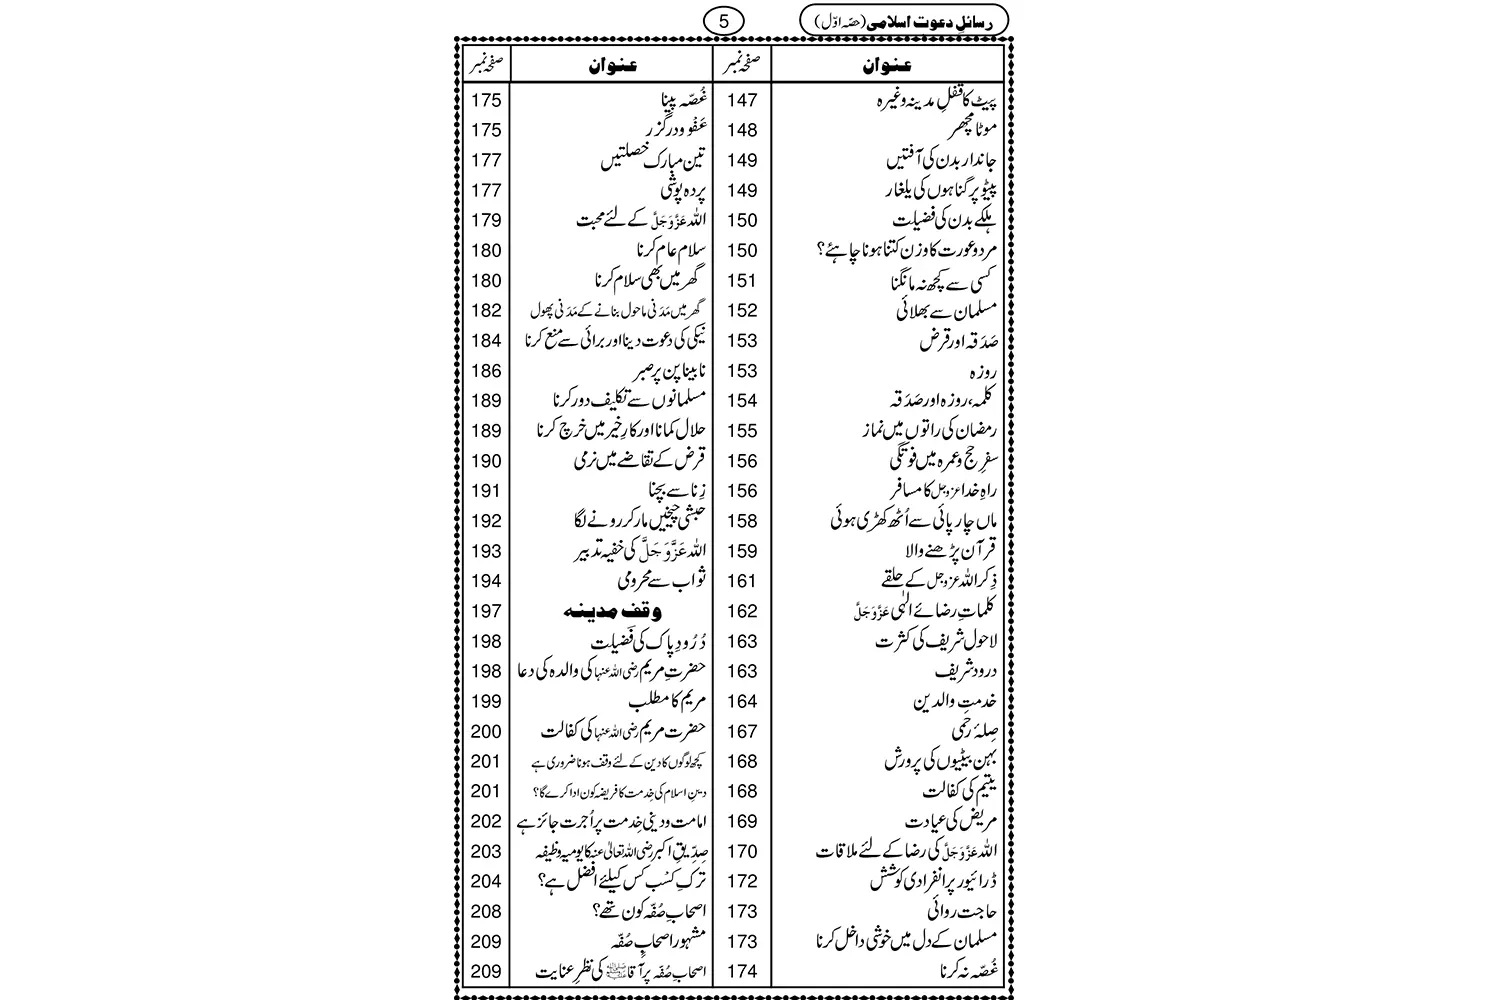 رسائلِ دعوت اسلامی (حصّہ اوّل)
5
عنوان صفحہ نمبر عنوان صفحہ نمبر
پیٹ کا قفلِ مدینہ وغیرہ 147
موٹا مچھر 148
جاندار بدن کی آفتیں 149
پیٹو پر گناہوں کی یلغار 149
ہلکے بدن کی فضیلت 150
مرد و عورت کا وزن کتنا ہونا چاہئے؟ 150
کسی سے کچھ نہ مانگنا 151
مسلمان سے بھلائی 152
صَدَقہ اور قرض 153
روزہ 153
کلمہ، روزہ اور صَدَقہ 154
رمضان کی راتوں میں نماز 155
سفرِ حج و عمرہ میں فوتگی 156
راہِ خدا عزوجل کا مسافر 156
ماں چارپائی سے اُٹھ کھڑی ہوئی 158
قرآن پڑھنے والا 159
ذِکر اللہ عزوجل کے حلقے 161
کلماتِ رضائے الٰہی عَزَّوَجَلَّ 162
لاحول شریف کی کثرت 163
درود شریف 163
خدمتِ والدین 164
صِلۂ رَحمی 167
بہن بیٹیوں کی پرورش 168
یتیم کی کفالت 168
مریض کی عیادت 169
اللہ عَزَّوَجَلَّ کی رضا کے لئے ملاقات 170
ڈرائیور پر انفرادی کوشش 172
حاجت روائی 173
مسلمان کے دل میں خوشی داخل کرنا 173
غُصّہ نہ کرنا 174
غُصّہ پینا 175
عَفْو و درگزر 175
تین مبارک خصلتیں 177
پردہ پوشی 177
اللہ عَزَّوَجَلَّ کے لئے محبت 179
سلام عام کرنا 180
گھر میں بھی سلام کرنا 180
گھر میں مَدَنی ماحول بنانے کے مَدَنی پھول 182
نیکی کی دعوت دینا اور برائی سے منع کرنا 184
نابینا پن پر صبر 186
مسلمانوں سے تکلیف دور کرنا 189
حلال کمانا اور کارِ خیر میں خرچ کرنا 189
قرض کے تقاضے میں نرمی 190
زِنا سے بچنا 191
حبشی چیخیں مار کر رونے لگا 192
اللہ عَزَّوَجَلَّ کی خفیہ تدبیر 193
ثواب سے محرومی 194
وقفِ مدینہ 197
دُرُودِ پاک کی فضیلت 198
حضرتِ مریم رضی اللہ عنہا کی والدہ کی دعا 198
مریم کا مطلب 199
حضرت مریم رضی اللہ عنہا کی کفالت 200
کچھ لوگوں کا دین کے لئے وقف ہونا ضروری ہے 201
دینِ اسلام کی خِدمت کا فریضہ کون ادا کرے گا؟ 201
امامت و دینی خِدمت پر اُجرت جائز ہے 202
صِدّیقِ اکبر رضی اللہ تعالٰی عنہ کا یومیہ وظیفہ 203
ترکِ کسْب کس کیلئے افضل ہے؟ 204
اصحابِ صُفّہ کون تھے؟ 208
مشہور اصحابِ صُفّہ 209
اصحابِ صُفّہ پر آقا ﷺ کی نظرِ عنایت 209